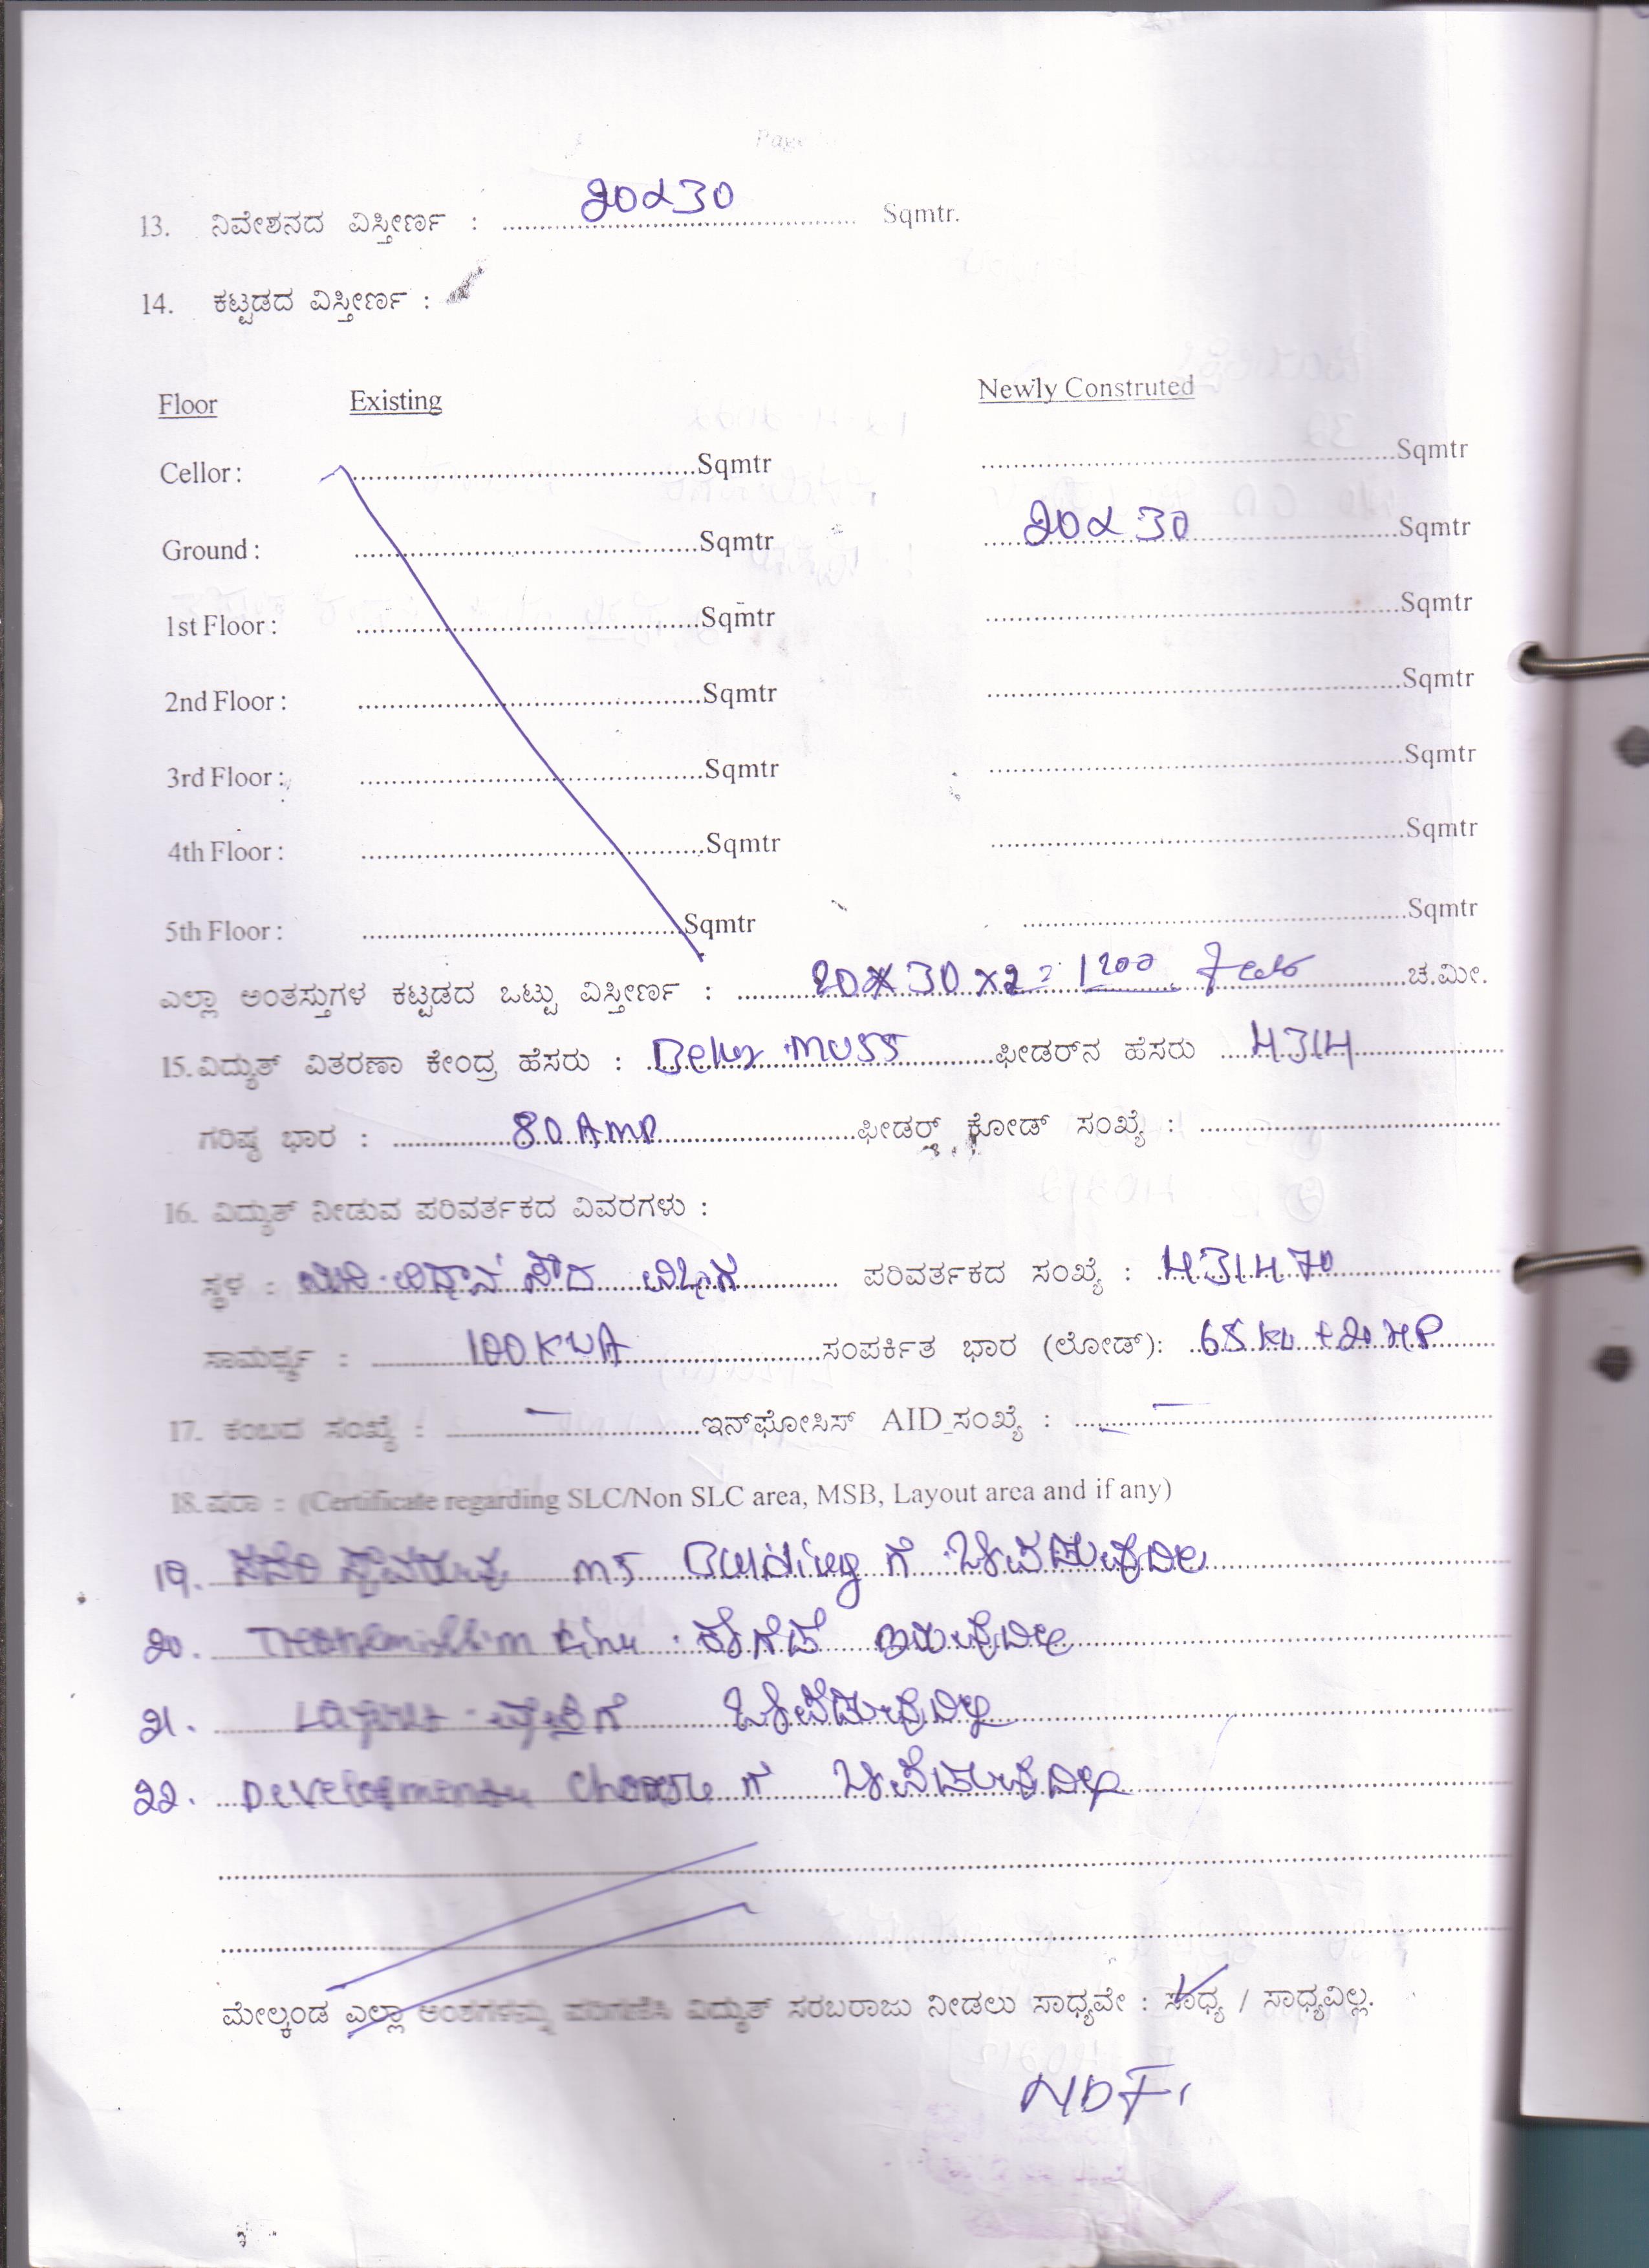 13. ನಿವೇಶನದ ವಿಸ್ತೀರ್ಣ : 20x30 Sqmtr.
14. ಕಟ್ಟಡದ ವಿಸ್ತೀರ್ಣ :
Floor Existing Newly Construted
Cellor : Sqmtr Sqmtr
Ground : Sqmtr 20x30 Sqmtr
1st Floor : Sqmtr Sqmtr
2nd Floor : Sqmtr Sqmtr
3rd Floor : Sqmtr Sqmtr
4th Floor : Sqmtr Sqmtr
5th Floor : Sqmtr Sqmtr
ಎಲ್ಲಾ ಅಂತಸ್ತುಗಳ ಕಟ್ಟಡದ ಒಟ್ಟು ವಿಸ್ತೀರ್ಣ : 20x30x2= 1200 ಚ.ಮೀ.
15. ವಿದ್ಯುತ್ ವಿತರಣಾ ಕೇಂದ್ರ ಹೆಸರು : MUSS ಫೀಡರ್‌ನ ಹೆಸರು H314
ಗರಿಷ್ಠ ಭಾರ : 80 AMP ಫೀಡರ್ ಕೋಡ್ ಸಂಖ್ಯೆ :
16. ವಿದ್ಯುತ್ ನೀಡುವ ಪರಿವರ್ತಕದ ವಿವರಗಳು :
ಸ್ಥಳ : ಪರಿವರ್ತಕದ ಸಂಖ್ಯೆ : H31470
ಸಾಮರ್ಥ್ಯ : 100 KVA ಸಂಪರ್ಕಿತ ಭಾರ (ಲೋಡ್): 68 KW +20 HP
17. ಕಂಬದ ಸಂಖ್ಯೆ : — ಇನ್‌ಫೋಸಿಸ್ AID ಸಂಖ್ಯೆ : —
18. ಷರಾ : (Certificate regarding SLC/Non SLC area, MSB, Layout area and if any)
19. ಸದರಿ ಸ್ಥಾವರವು MS Building ಗೆ ಒಳಪಡುವುದಿಲ್ಲ
20. Line ಕೆಳಗಡೆ ಇರುವುದಿಲ್ಲ
21. Layout ವ್ಯಾಪ್ತಿಗೆ ಒಳಪಡುವುದಿಲ್ಲ
22. Development ಗೆ ಒಳಪಡುವುದಿಲ್ಲ
ಮೇಲ್ಕಂಡ ಎಲ್ಲಾ ಅಂಶಗಳನ್ನು ಪರಿಗಣಿಸಿ ವಿದ್ಯುತ್ ಸರಬರಾಜು ನೀಡಲು ಸಾಧ್ಯವೇ : ಸಾಧ್ಯ / ಸಾಧ್ಯವಿಲ್ಲ.